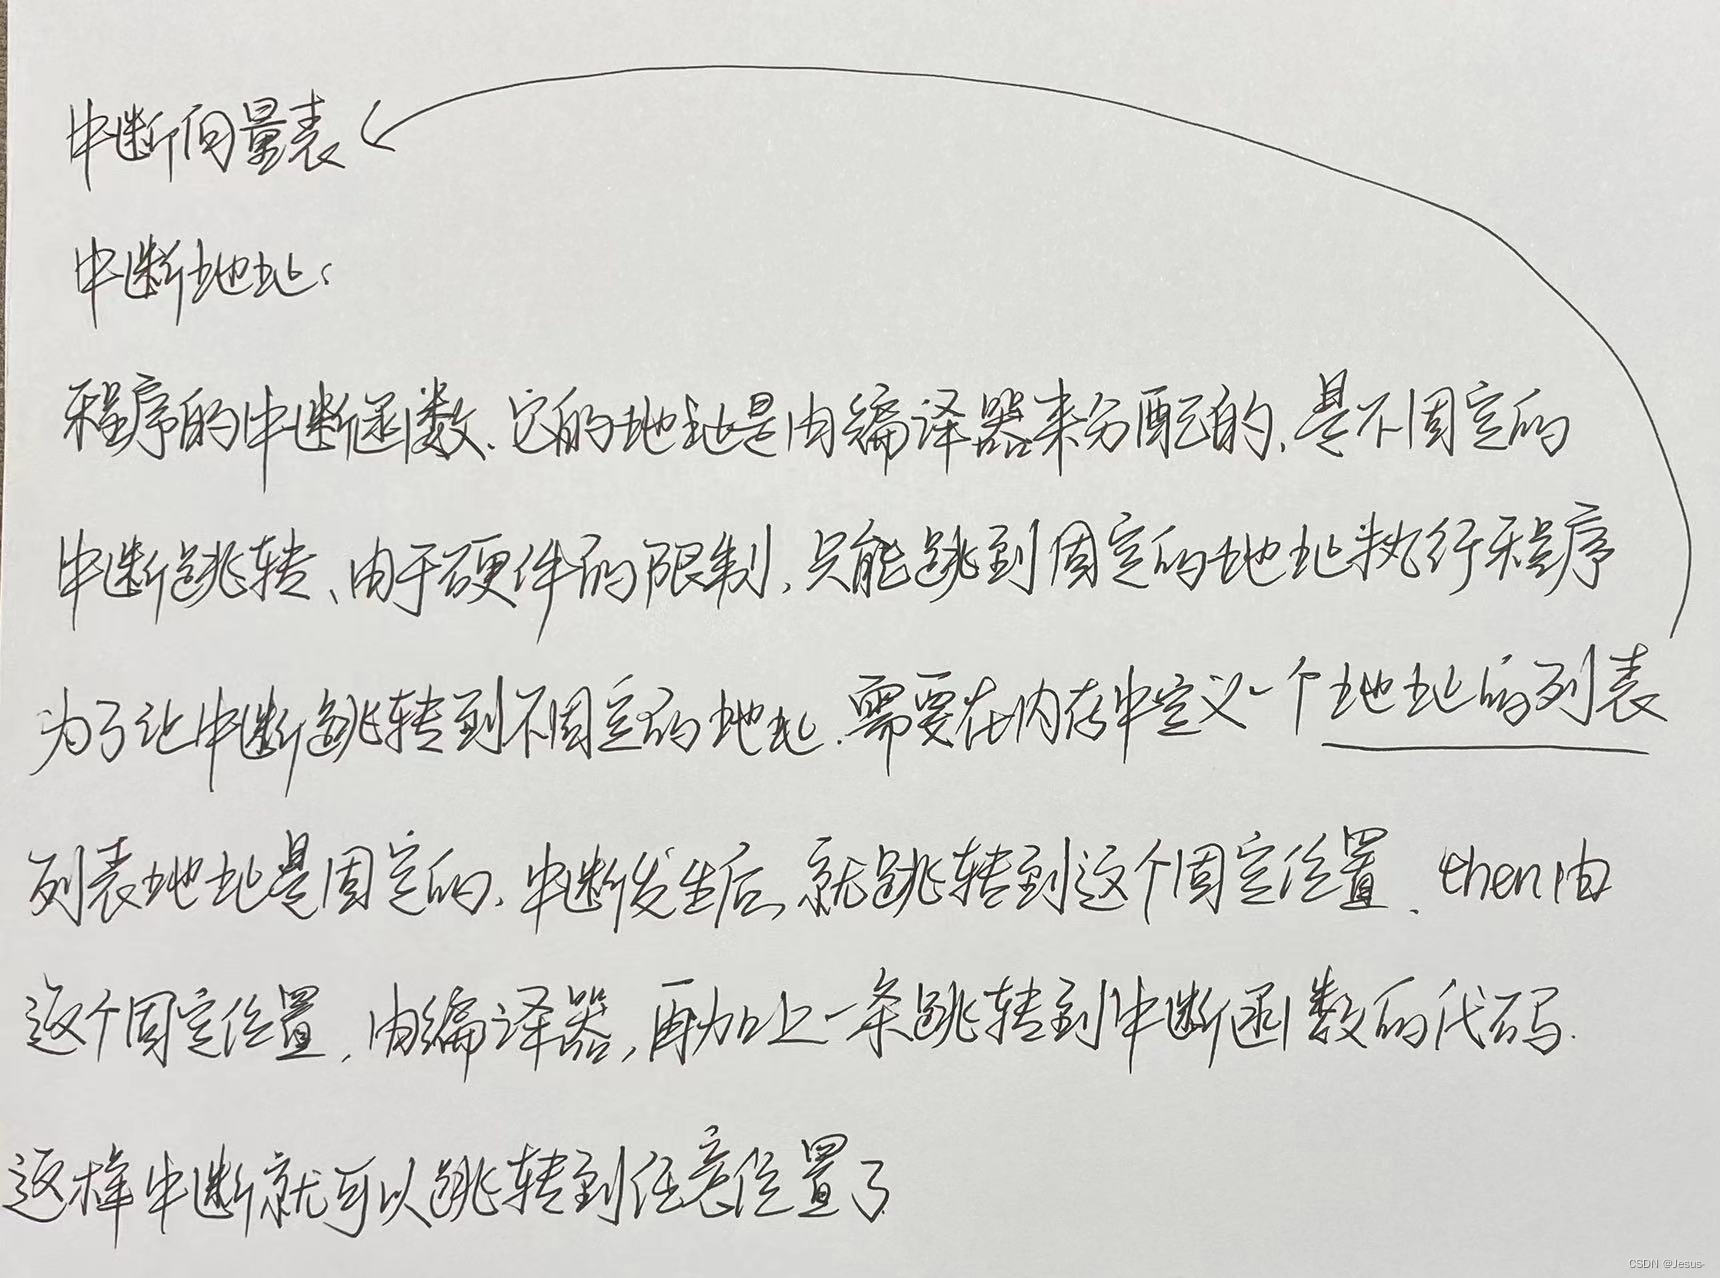 中断向量表
中断地址:
程序的中断函数、它的地址是由编译器来分配的,是不固定的
中断跳转、由于硬件的限制,只能跳到固定的地址执行程序
为了让中断跳转到不固定的地址.需要在内存中定义一个地址的列表
列表地址是固定的,中断发生后,就跳转到这个固定位置、then由
这个固定位置,由编译器,再加上一条跳转到中断函数的代码.
这样中断就可以跳转到任意位置了
CSDN @Jesus-